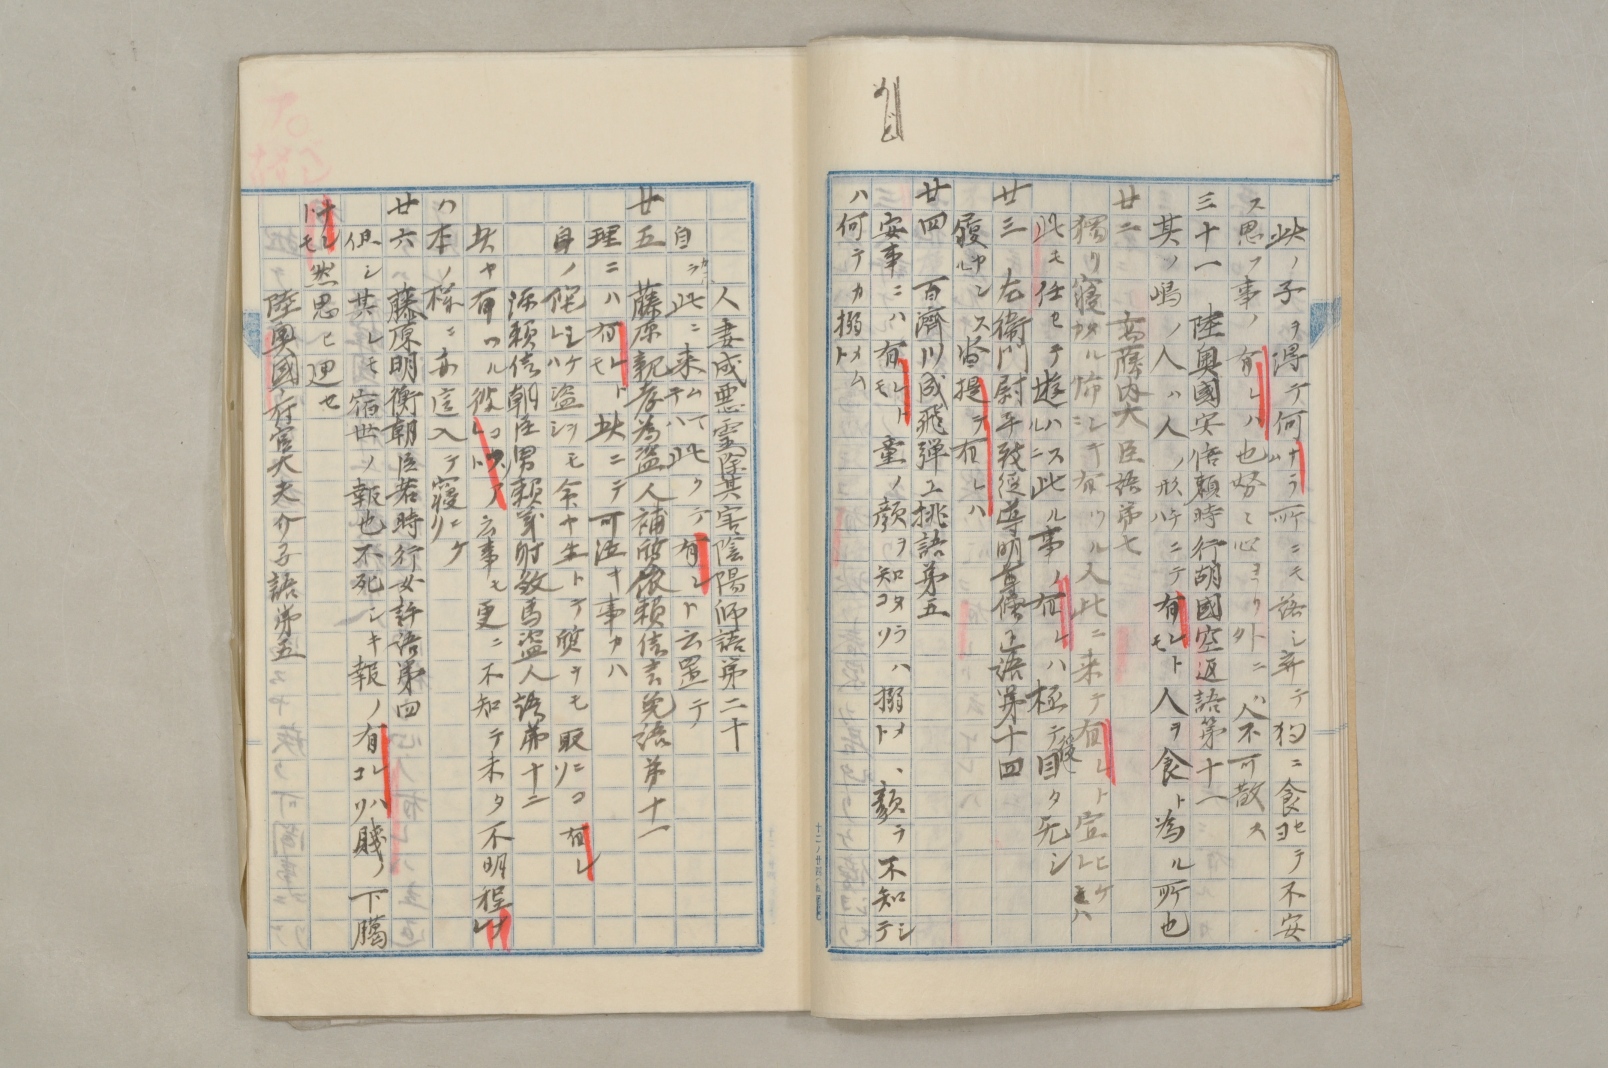 此ノ子ヲ得テ何ナラム所ニモ語ヒ寄テ狗ニ食ヨセテ不安
ス思フ事ノ有レハ也努々心ヨリ外ニ人不可散ス
三十一 陸奥國安倍頼時行胡國空返語第十一
其ノ嶋ノ人ハ人ノ形ハテニテ有レトモ人ヲ食ト為ル所也
廿二 高藤内大臣語第七
獨リ寝タル所ニシテ有ツル人此ニ来テ有レト宣ヒケレハ
此モ任セテ遊ハスルニ此ル事ノ有レハ極テ目タ无シ
廿三 左衛門尉平致経導明尊僧正語第十四
履ヤンス沓提テ有レハ
廿四 百濟川成飛弾工挑語第五
安事ニハ有レトモ童ノ顔ヲ知タラハコソ搦メ、顔ヲ不知テシ
ハ何テカ搦メムト
人妻成悪霊除其害陰陽師語第二十
自ラ此ニ来ムマテハ此クテ有レト云置テ
廿五 藤原親孝為盗人補質依頼信言免語第十一
理ニハ有レトモ此ニテ可泣キ事カハ
身ノ侘シケレハ盗ヲシモ命ヤ生トテ質ヲモ取ニコソ有レ
源頼信朝臣男頼義射殺馬盗人語第十二
此ヤ有ツル彼レコソアレト云事モ更ニ不知テ未タ不明程ナレ
ハ本ノ様ニ亦這入テ寝ニケリ
廿六 藤原明衡朝臣若時行女許語第四
但シ其レモ宿世ノ報也不死シキ報ノ有レハコソ賤ノ下臈
ナレトモ然思ヒ廻セ
陸奥國府官大夫介子語第五